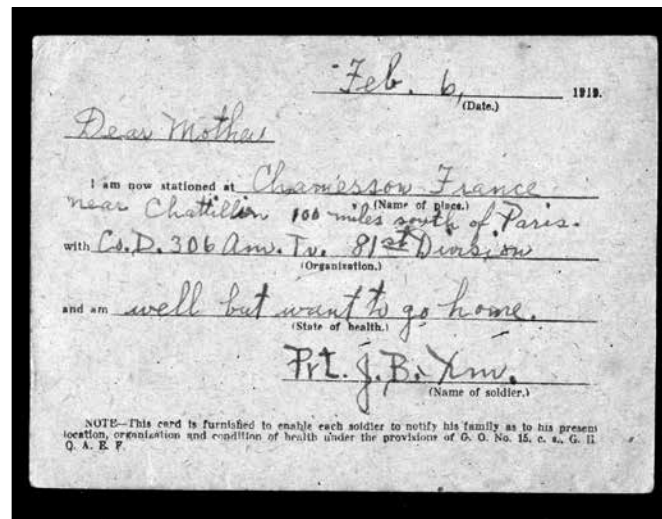 Feb. 6, 1919.
(Date.)
Dear Mother
I am now stationed at Chamesson France
(Name of place.)
near Chattillion 100 miles south of Paris.
with Co. D. 306 Am. Tr. 81st Division
(Organization.)
and am well but want to go home.
(State of health.)
Pvt. J. B.
(Name of soldier.)
NOTE—This card is furnished to enable each soldier to notify his family as to his present
location, organization and condition of health under the provisions of G. O. No. 15, c. s., G. H.
Q. A. E. F.